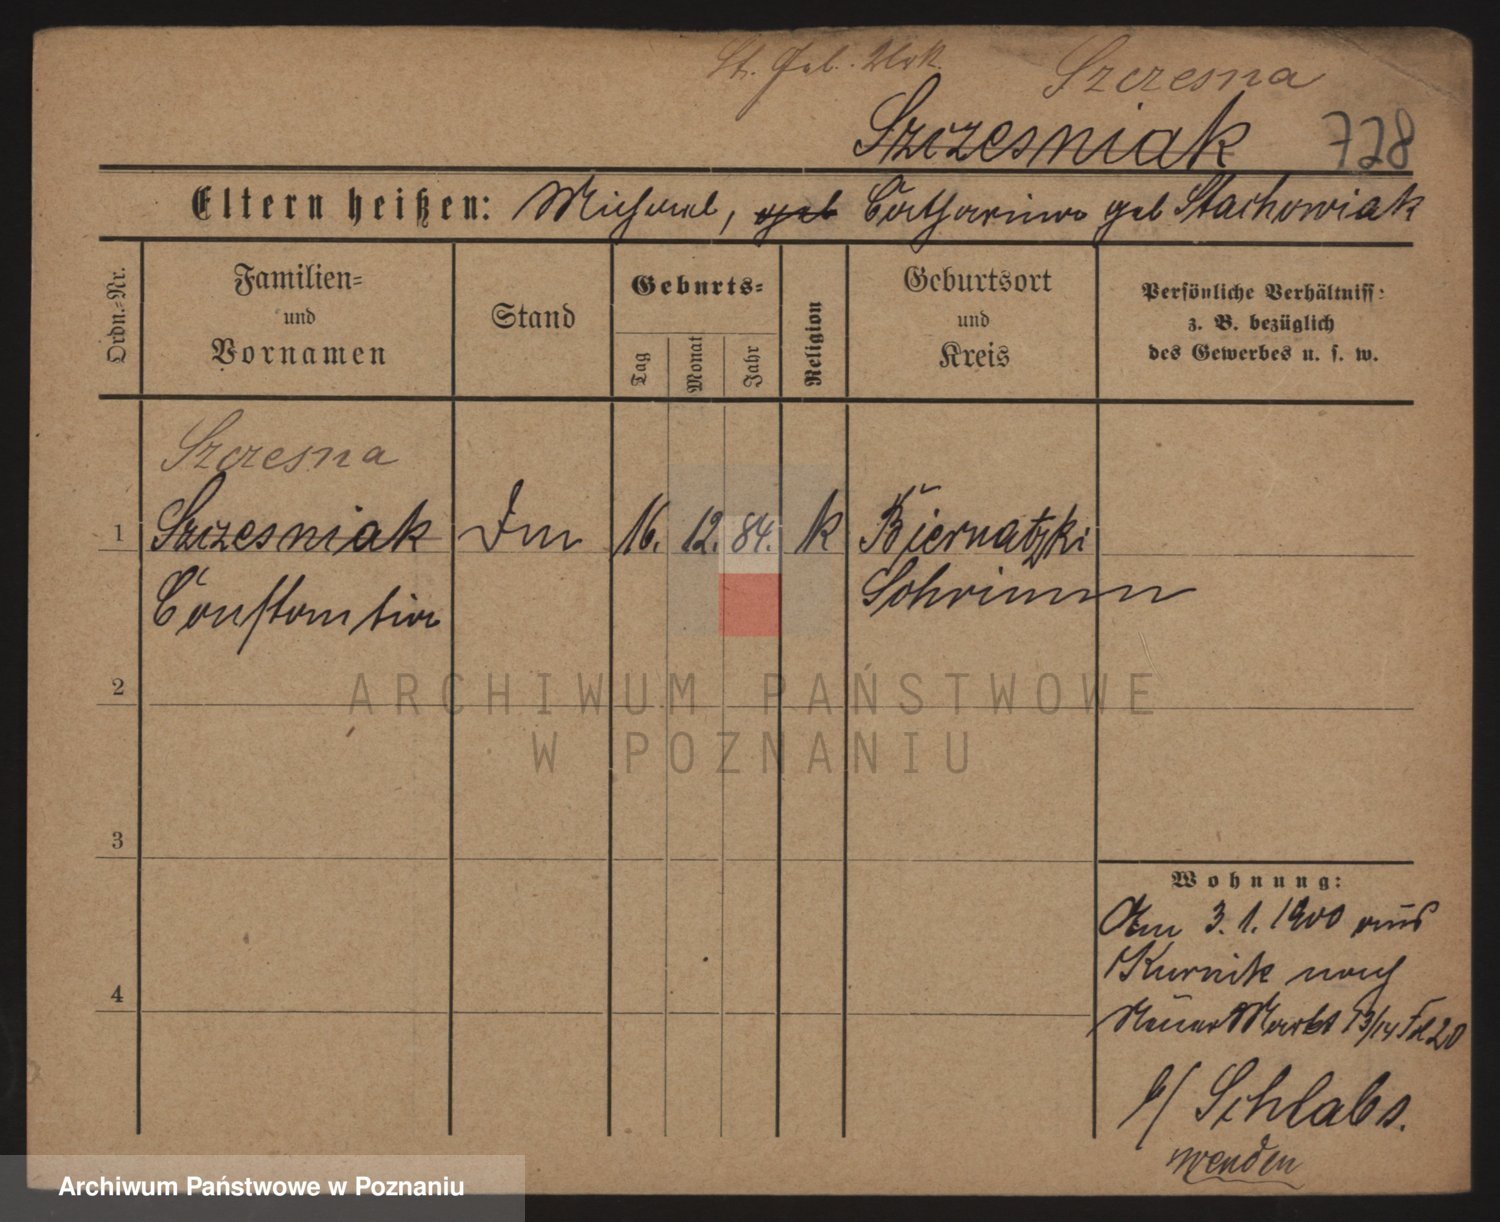 St. Geb. Urk.
Szczesna
Szczesniak 728
Eltern heißen: Michael, geb Catharina geb Stachowiak
Ordn.-Nr.
Familien-
und
Vornamen
Stand
Geburts-
Tag
Monat
Jahr
Religion
Geburtsort
und
Kreis
Persönliche Verhältniss:
z. B. bezüglich
des Gewerbes u. s. w.
Szczesna
1 Szczesniak 16. 12. 84. k Biernatzki
Constantia Schrimm
2
ARCHIWUM PAŃSTWOWE
W POZNANIU
3
4
Wohnung:
Am 3. 1. 1900 aus
Kurnik nach
Neuer Markt 13/14 20
b/ Schlabs.
wenden
Archiwum Państwowe w Poznaniu